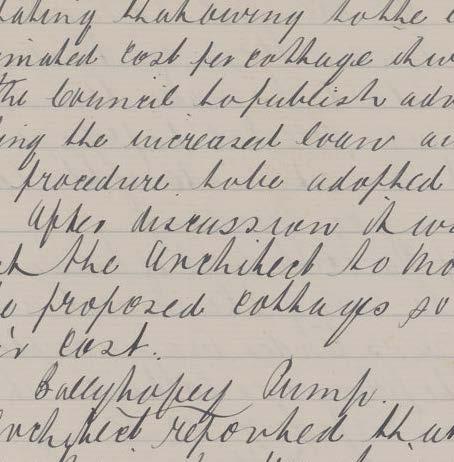 tating that owing to the
imated cost per cottage it w
the Council to publish adv
ing the increased loan a
procedure to be adopted
After discussion it wa
the Architect to mo
e proposed cottages so
ir cost.
Ballyhopey Pump.
Architect reported tha